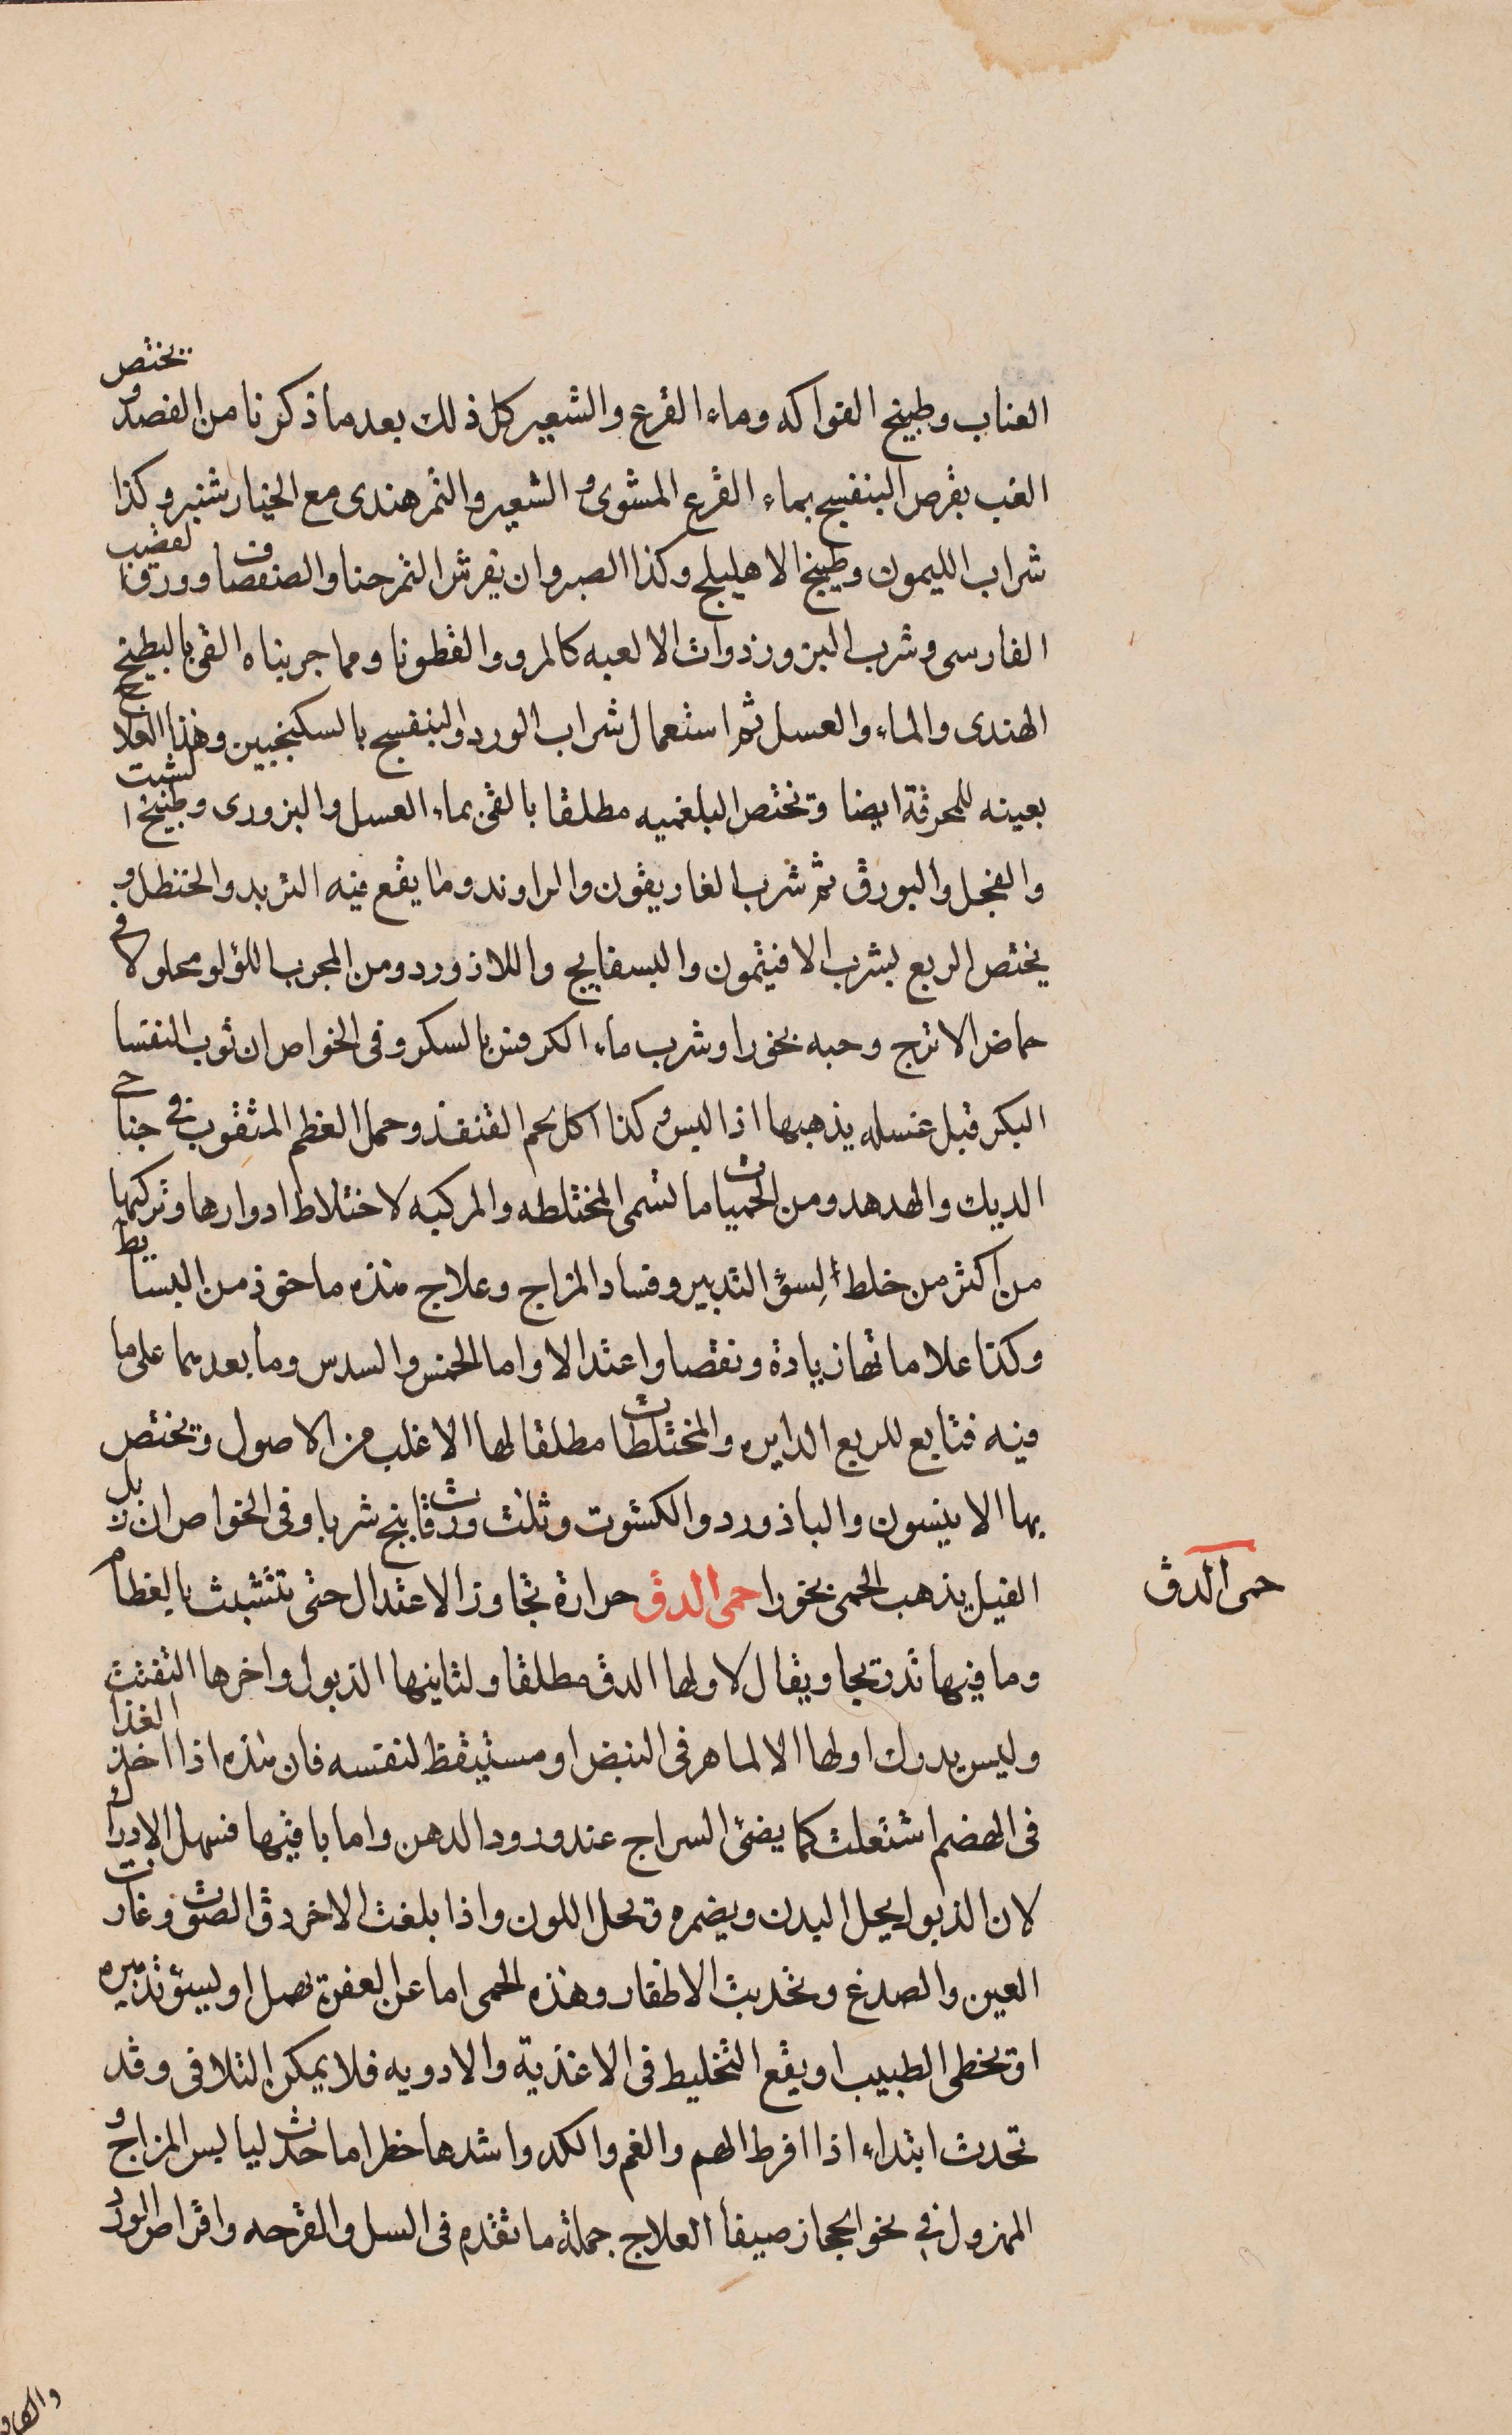 العناب وطبيخ الفواكه وماء القرع والشعير كل ذلك بعد ما ذكرنا من الفصد ويختص
الغب بقرص البنفسج بماء القرع المشوى والشعير والتمر هندى مع الخيار شنبر وكذا
شراب الليمون وطبيخ الاهليلج وكذا الصبر وان يفرش التمر حنا والصفصاف وورق القصب
الفارسى وشرب البزور ذوات الالعبه كالمرو والقطونا ومما جربناه القى بالبطيخ
الهندى والماء والعسل ثم استعمال شراب الورد او البنفسج بالسكنجبين وهذا العلاج
بعينه للمحرقة ايضا وتختص البلغميه مطلقا بالقئ بماء العسل والبزورى وطبيخ الشبت
والفجل والبورق ثم شرب الغاريقون والراوند وما يقع فيه التربد والحنظل و
يختص الربع بشرب الافيثمون والبسفايج واللازورد ومن المجرب اللؤلو محلولا في
حماض الاترج وحبه بخورا وشرب ماء الكرفس بالسكر وفى الخواص ان ثوب النفسا
البكر قبل غسله يذهبها اذا لبس وكذا اكل لحم القنفذ وحمل العظم المثقوب في جناحي
الديك والهدهد ومن الحميات ما تسمى المختلطه والمركبه لاختلاط ادوارها وتركبها
من اكثر من خلط لسؤ التدبير وفساد المزاج وعلاج هذه ماخوذ من البسايط
وكذا علاماتها زيادة ونقصا واعتدالا واما الخمس والسدس وما بعدهما على ما
فيه فتابع للربع الدايره والمختلطات مطلقا لها الاغلب من الاصول وتختص
بها الانيسون والباذورد والكشوت وثلث ورقات بنج شربا وفى الخواص ان زبل
الفيل يذهب الحمى بخورا حمى الدق حرارة تجاوز الاعتدال حتى تتشبث بالعظام
وما فيها تدريجا ويقال لاولها الدق مطلقا ولثانيها الذبول واخرها التفتت
وليس يدرك اولها الا لماهر فى النبض او مستيقظ لنفسه فان هذه اذا اخذ الغذا
فى الهضم اشتعلت كما يضئ السراج عند ورود الدهن واما باقيها فسهل الادراك
لان الذبول يحل البدن ويضمره ويحل اللون واذا بلغت الاخر دق الصوت وغارت
العين والصدغ وتحدبت الاظفار وهذه الحمى اما عن العفن تصل او لسئ تدبيره
او يخطى الطبيب او يقع التخليط فى الاغذية والادويه فلا يمكن التلافى وقد
تحدث ابتداء اذا افرط الهم والغم والكد واشدها خطرا ما حدث ليابس المزاج و
المهزول فى نحو الحجاز صيفا العلاج جملة ما تقدم فى السل والقرحه واقراص الورد
حمى الدق